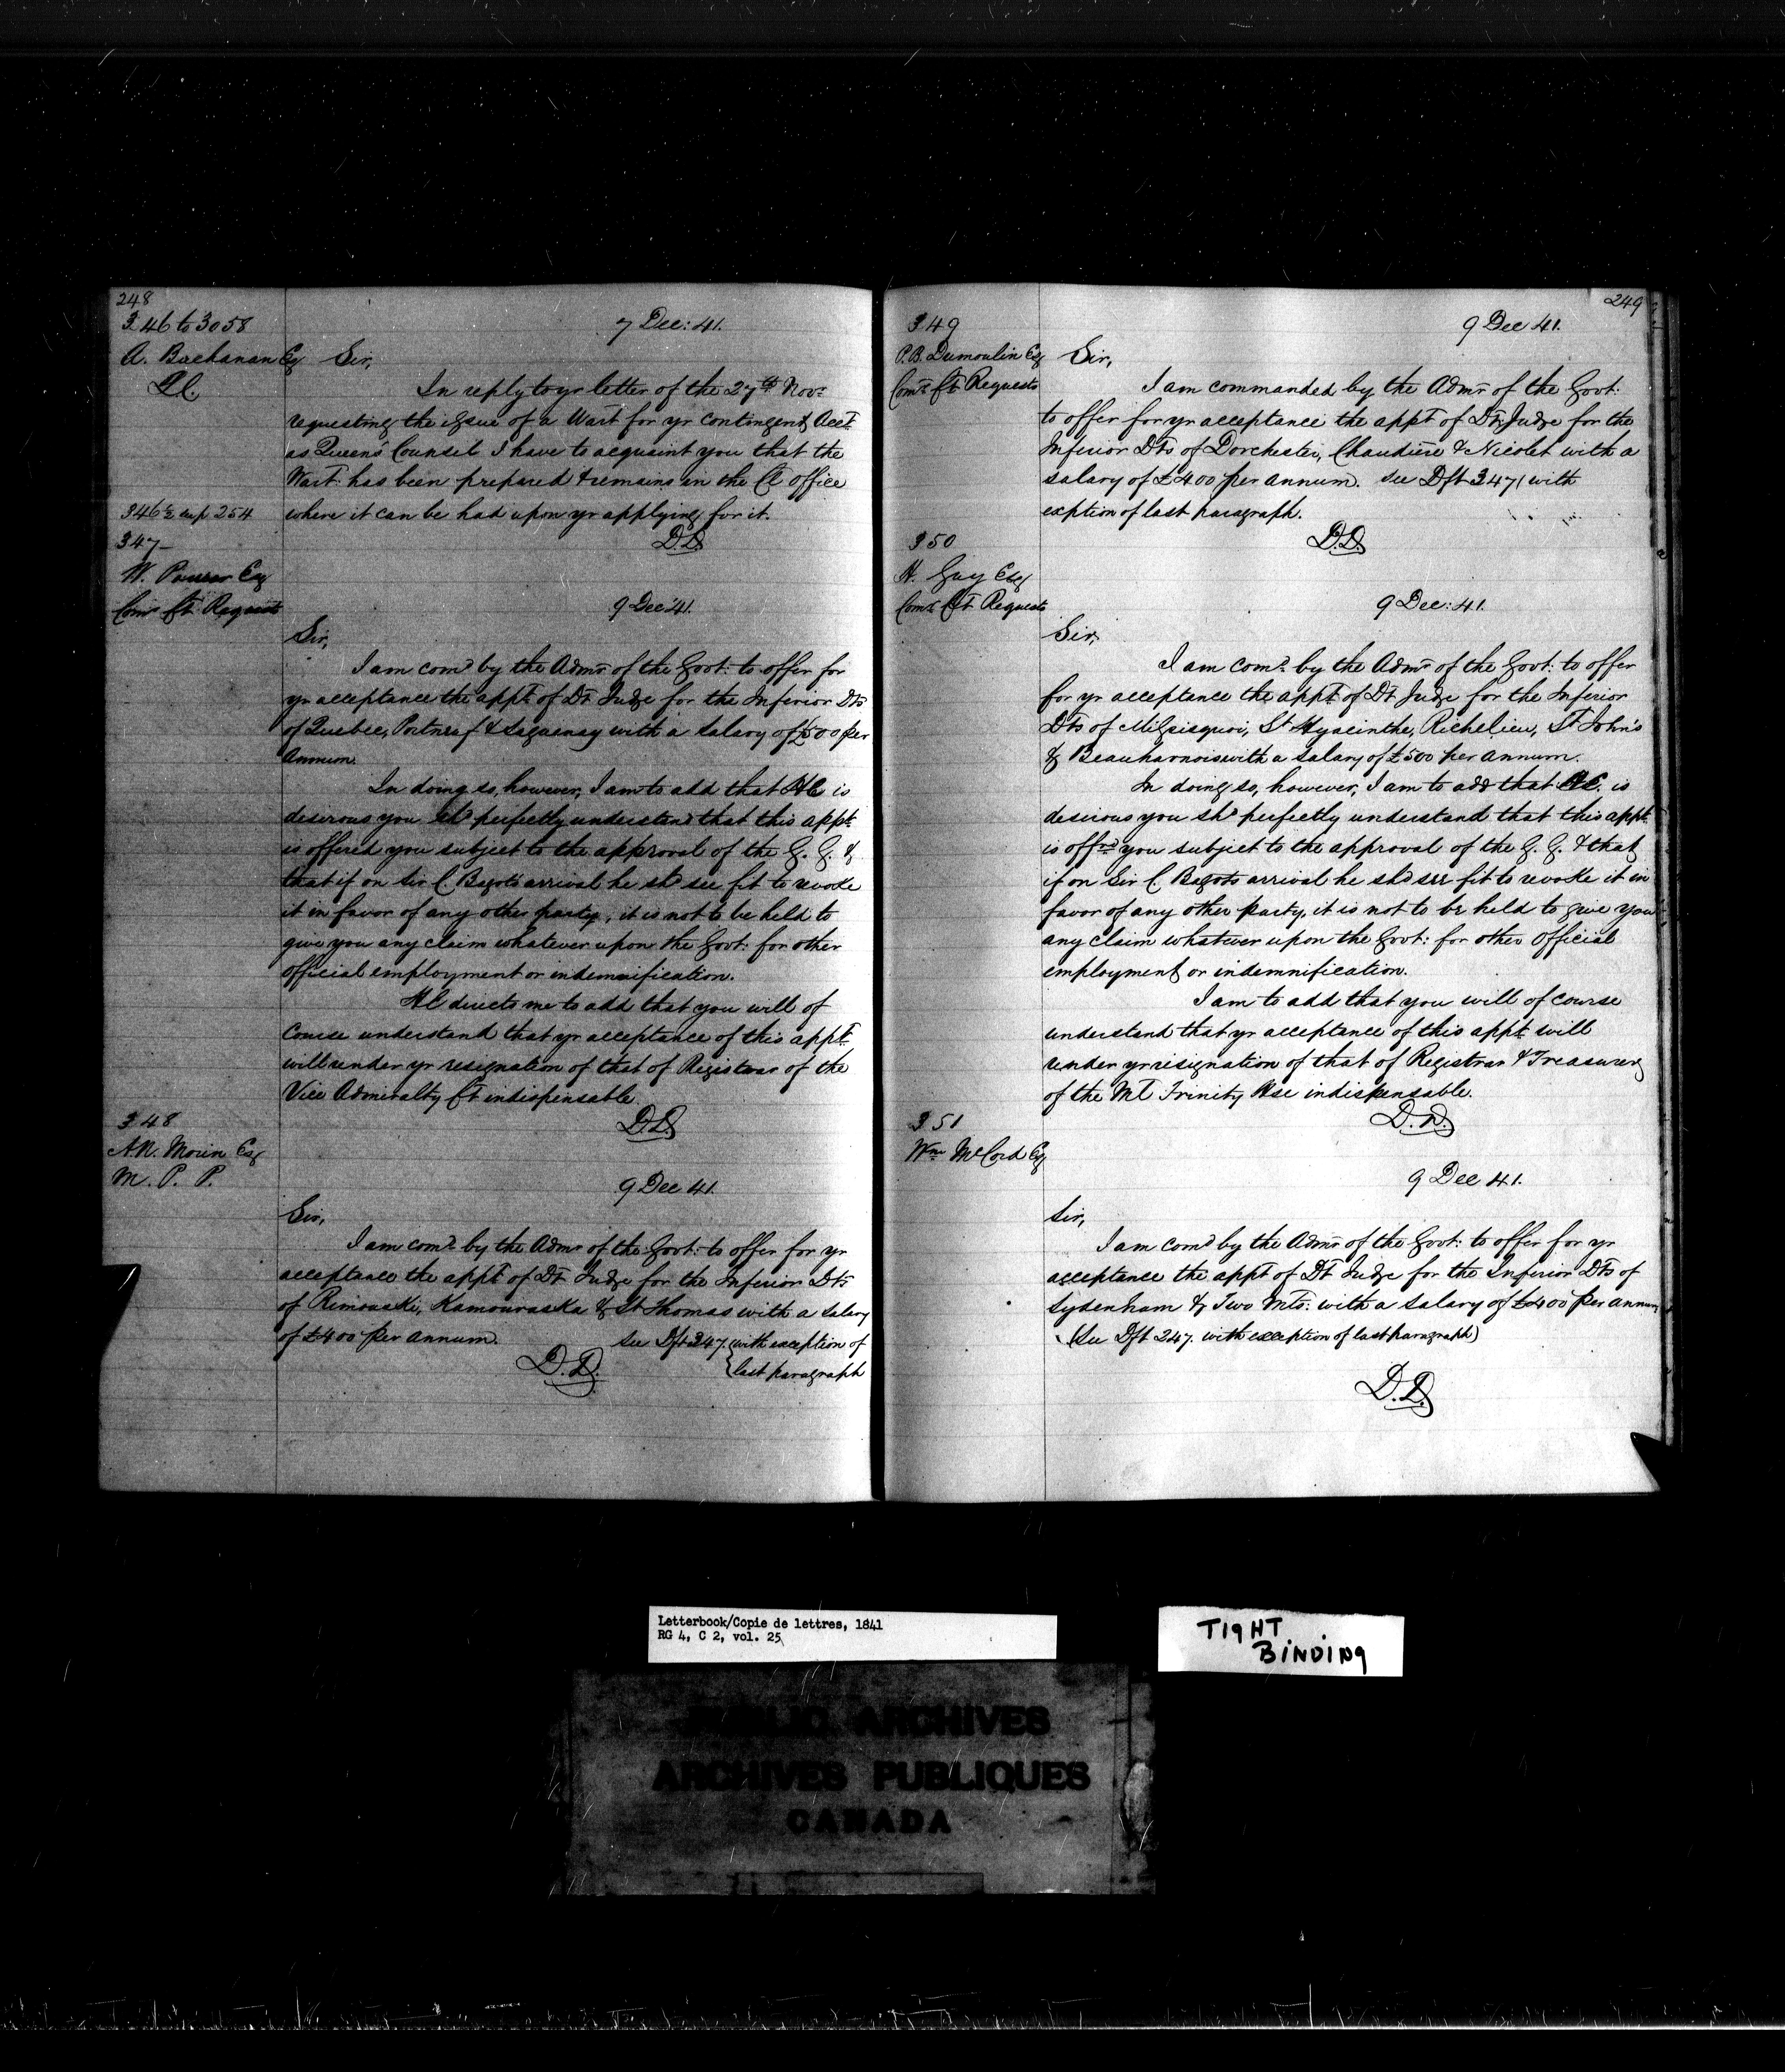 248
346 to 3058
A. Buchanan Esq
Q.C.
7 Dec: 41.
Sir,
In reply to yr letter of the 27th Novr
requesting the issue of a Wart for yr contingent Acct
as Queens Counsel I have to acquaint you that the
Wart has been prepared & remains in the Ct office
where it can be had upon yr applying for it.
D.D.
346½ sup 254
347
W. Power Esq
Comr Ct Requests
9 Dec 41.
Sir,
I am comd by the Admr of the Govt: to offer for
yr acceptance the appt of Dt Judge for the Inferior Dts
of Quebec, Portneuf & Saguenay with a salary of £500 per
Annum.
In doing so, however, I am to add that HE is
desirous you shd perfectly understand that this appt
is offered you subject to the approval of the G. G. &
that if on Sir C. Bagot's arrival he shd see fit to revoke
it in favor of any other party, it is not to be held to
give you any claim whatever upon the Govt: for other
official employment or indemnification.
HE directs me to add that you will of
course understand that yr acceptance of this appt
will render yr resignation of that of Registrar of the
Vice Admiralty Ct indispensable.
D.D.
348
A.N. Morin Esq
M. P. P.
9 Dec 41.
Sir,
I am comd by the Admr of the Govt: to offer for yr
acceptance the appt of Dt Judge for the Inferior Dts
of Rimouski, Kamouraska & St Thomas with a salary
of £400 per annum. see Dft 347. (with exception of
last paragraph
D.D.
249
349
P.B. Dumoulin Esq
Comr Ct Requests
9 Dec 41.
Sir,
I am commanded by the Admr of the Govt:
to offer for yr acceptance the appt of Dt Judge for the
Inferior Dts of Dorchester, Chaudière & Nicolet with a
salary of £400 per annum. see Dft 347 (with
exption of last paragraph.
D.D.
350
H. Guy Esq
Comr Ct Requests
9 Dec: 41.
Sir,
I am comd by the Admr of the Govt: to offer
for yr acceptance the appt of Dt Judge for the Inferior
Dts of Missisquoi, St Hyacinthe, Richelieu, St John's
& Beauharnois with a salary of £500 per annum.
In doing so, however, I am to add that H.E. is
desirous you shd perfectly understand that this appt
is offrd you subject to the approval of the G. G. & that
if on Sir C. Bagots arrival he shd see fit to revoke it in
favor of any other party, it is not to be held to give you
any claim whatever upon the Govt: for other official
employment or indemnification.
I am to add that you will of course
understand that yr acceptance of this appt will
render yr resignation of that of Registrar & Treasurer
of the Ml Trinity Hse indispensable.
D.D.
351
Wm McCord Esq
9 Dec 41.
Sir,
I am comd by the Admr of the Govt: to offer for yr
acceptance the appt of Dt Judge for the Inferior Dts of
Sydenham & Two Mts: with a salary of £400 per annum
(See Dft 247. with exception of last paragraph)
D.D.
Letterbook/Copie de lettres, 1841
RG 4, C 2, vol. 25
TIGHT
BINDING
PUBLIC ARCHIVES
ARCHIVES PUBLIQUES
CANADA